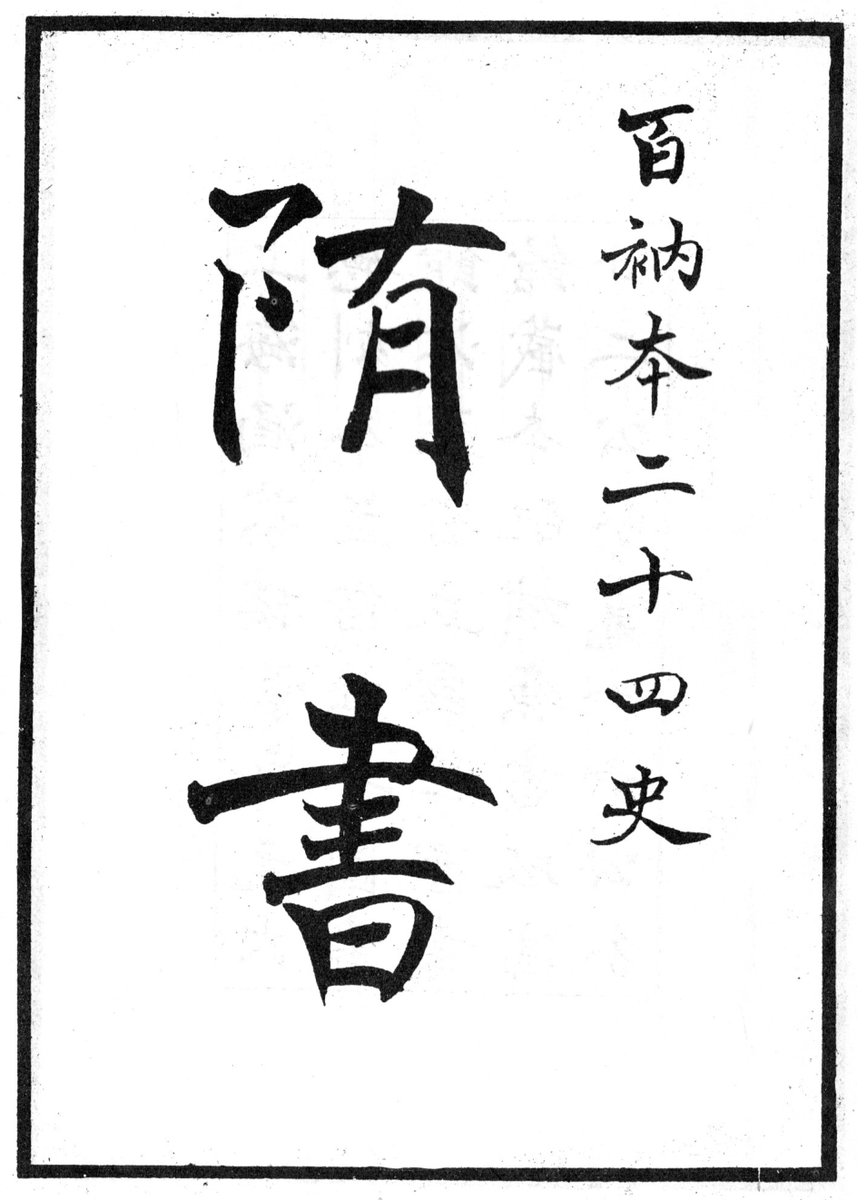 百衲本二十四史
隋書